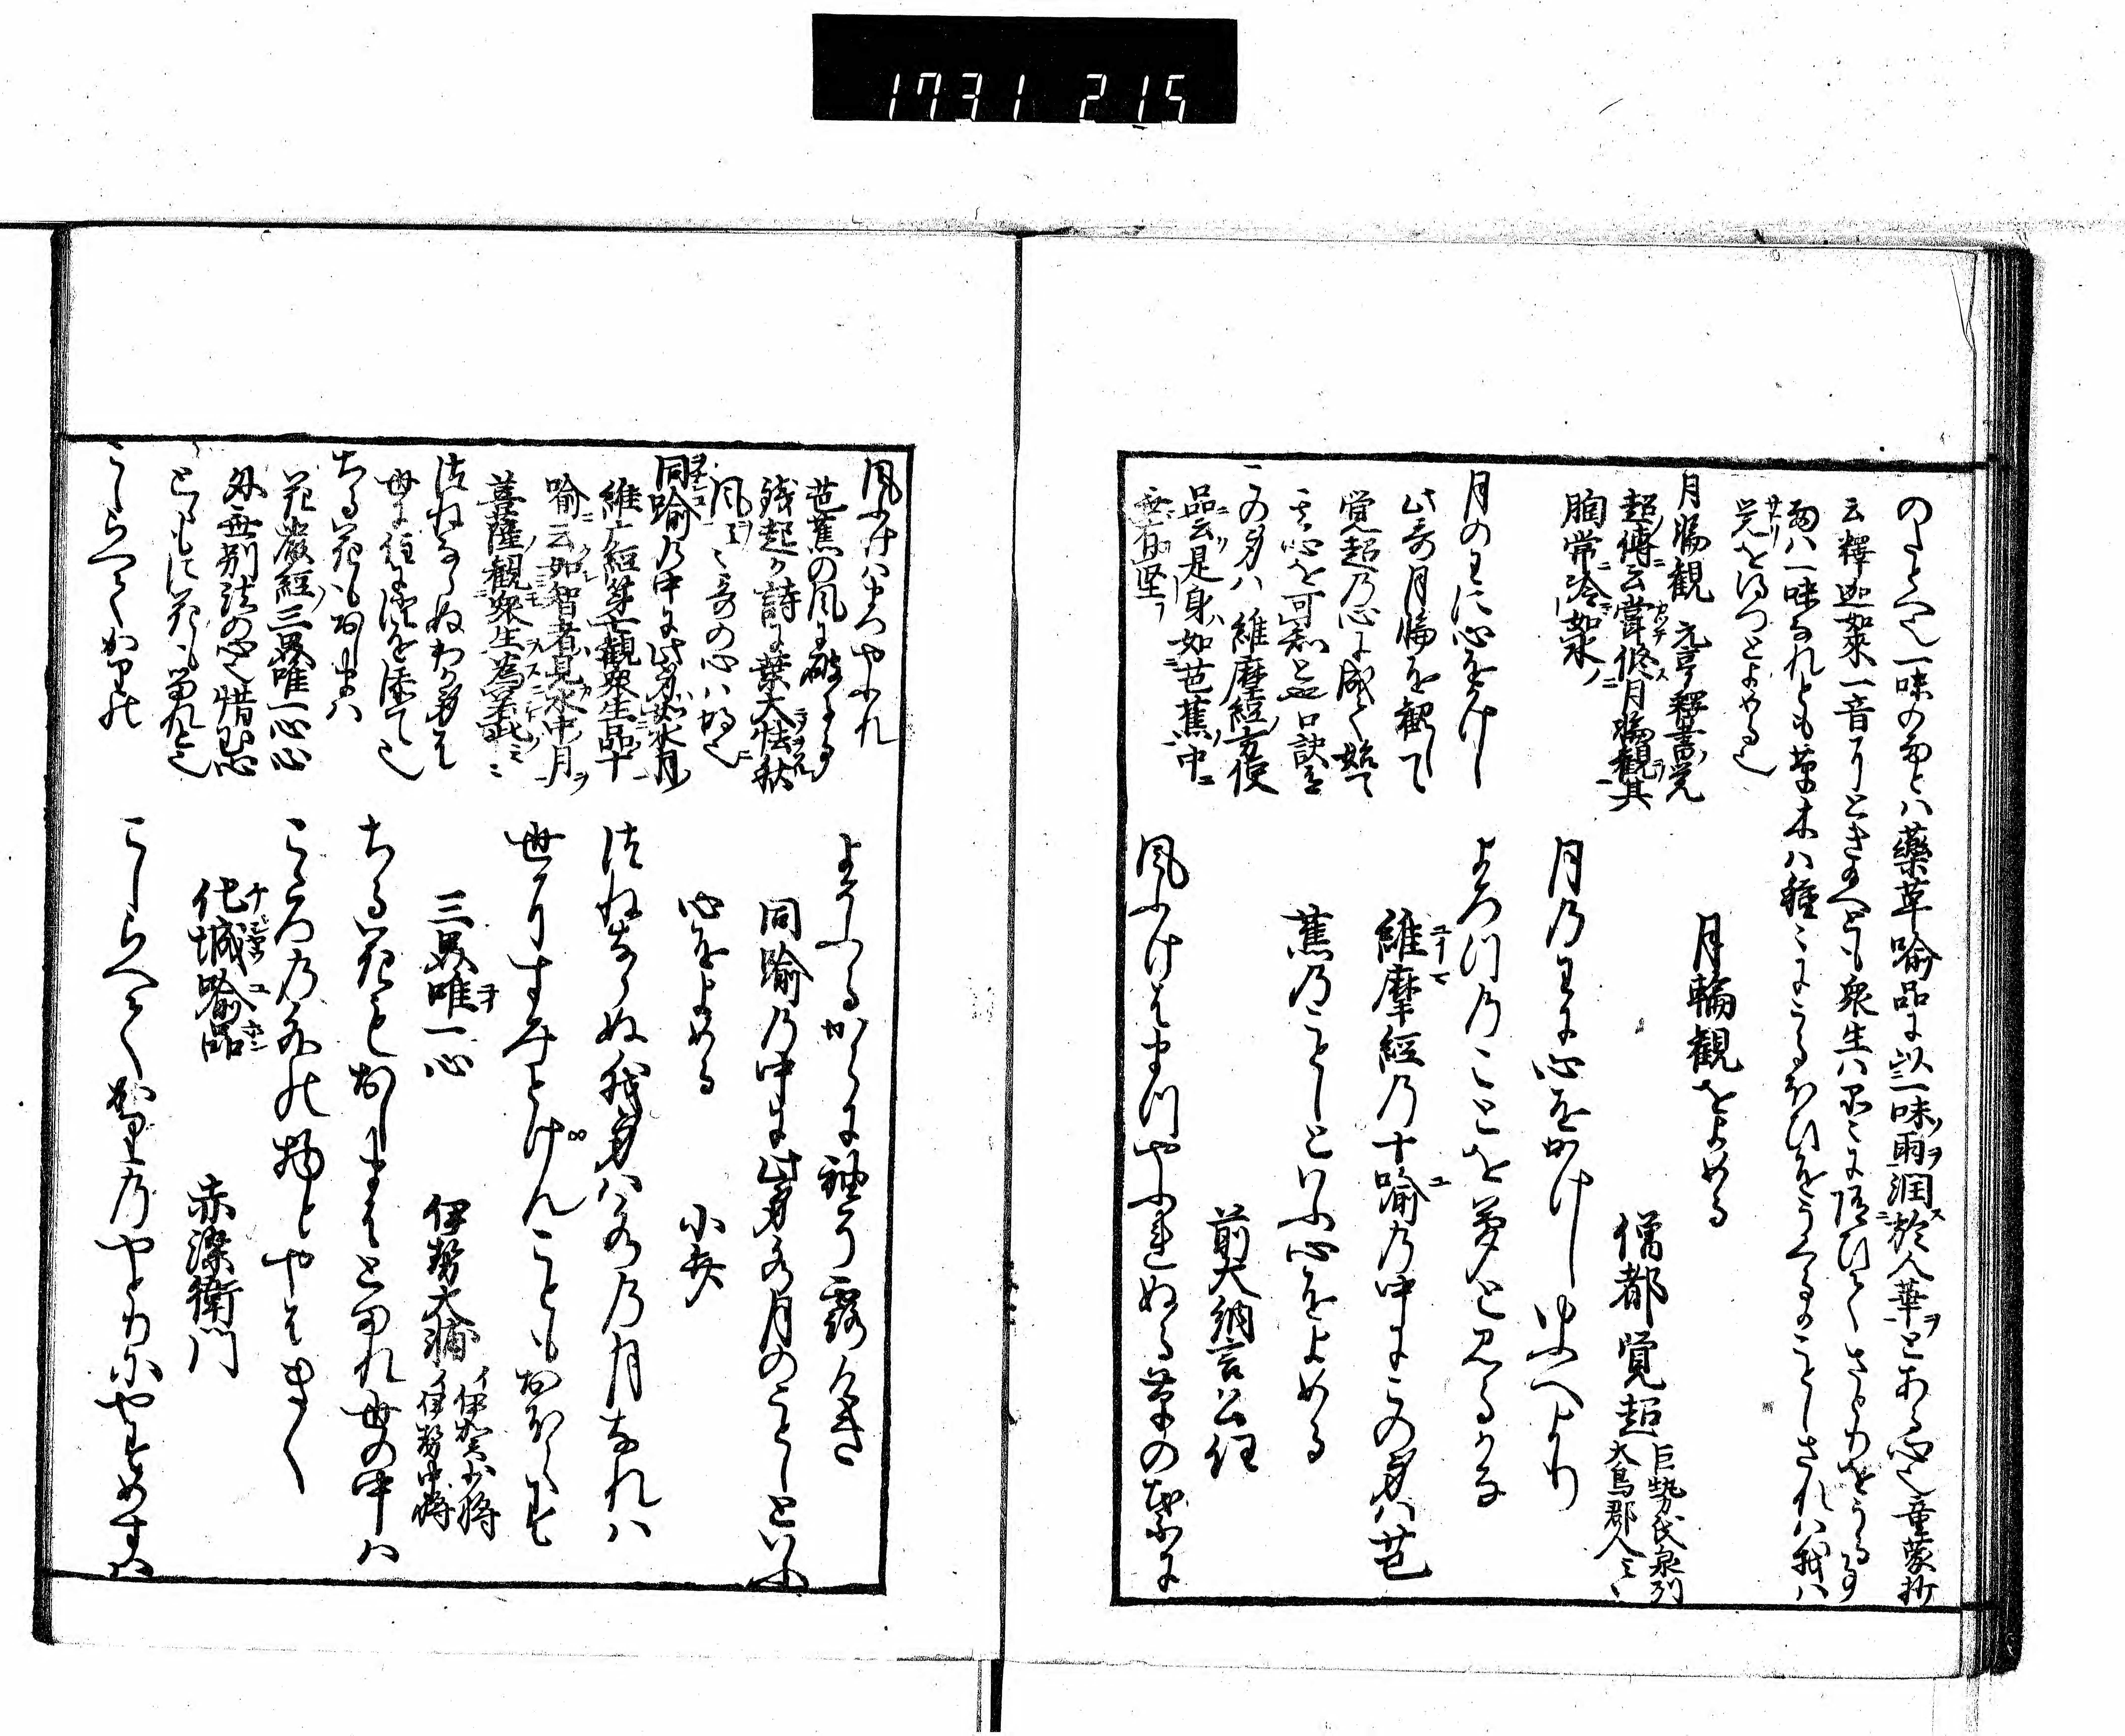 1731 215
のたとへ也一味の雨とハ藥草喩品に以一味雨潤於人華とある心也童蒙抄
云釋迦如來一音にとき給へども衆生ハ品〻に随ひてさとりをうる事
雨ハ一味なれとも草木ハ種〻にうるほひをうくるかことしされハ我ハ
覚を得つとよめる也
月輪観 元亨釋書覚
超傳云嘗修月輪観其
胸常冷如氷
月輪観をよめる
僧都覚超 巨勢氏泉州
大鳥郡人云〻
月のわに心をかけし
月乃わに心をかけしゆふへより
此哥月輪を観して
覚超乃心に感て始て
よろつ乃ことを夢と見るかな
維摩經乃十喩乃中にこの身ハ芭
蕉乃ことしといふ心をよめる
前大納言公任
この身ハ 維摩經方便
品云是身如芭蕉中
無有堅
風ふけはまつやふれぬる草の葉に
風ふけハまつやふれ
芭蕉の風に破るゝ
銭起か詩に葉大怯秋
風云〻哥の心ハ明也
よそふるからに袖そ露けき
同喩乃中に此身水月のことしといふ
心をよめる
小弁
同喩乃中に此身如水月
維广經第七観衆生品十
喩云如智者見水中月
菩薩観衆生為若此
つねならぬ我身ハ水乃月なれハ
世にすみとけんこともおほえす
つねならぬわか身は
世に住に澄を添て也
三界唯一心
伊勢大輔 イ伊賀少将
イ伊勢中将
ちる花もおしまハ
花嚴經三界唯一心心
外無別法の心也惜心
ちる花もおしまはとまれ世の中ハ
こゝろ乃外の物とやはきく
化城喩品
赤染衛門
こしらへてかりの
こしらへてかり乃やとりにやすめすハ